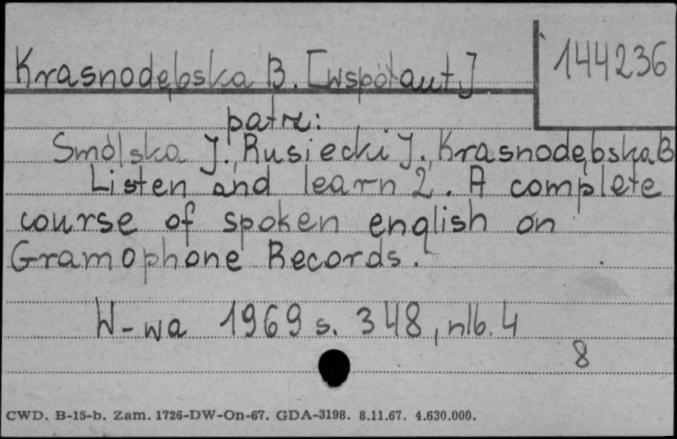 Krasnodębska B. [współaut.]
144236
patrz:
Smólska J., Rusiecki J., Krasnodębska B
Listen and learn 2. A complete
course of spoken english on
Gramophone Records.
W-wa 1969 s. 348, nlb. 4
8
CWD. B-15-b. Zam. 1726-DW-On-67. GDA-3198. 8.11.67. 4.630.000.